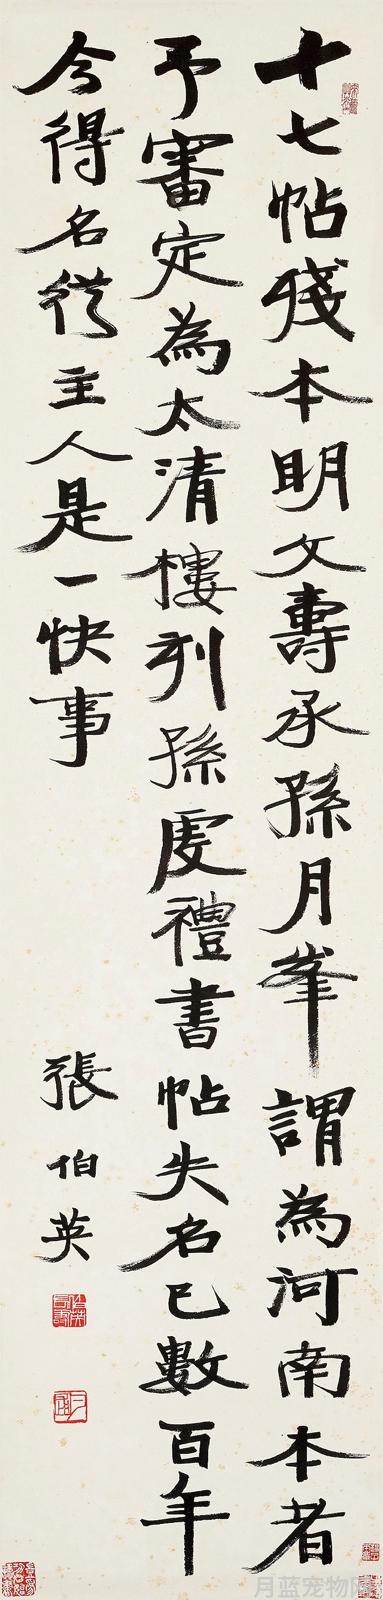 十七帖殘本明文壽承孫月峯謂為河南本者
予審定為太清樓列孫虔禮書帖失名已數百年
今得名從主人是一快事
張伯英
月蓝宠物网